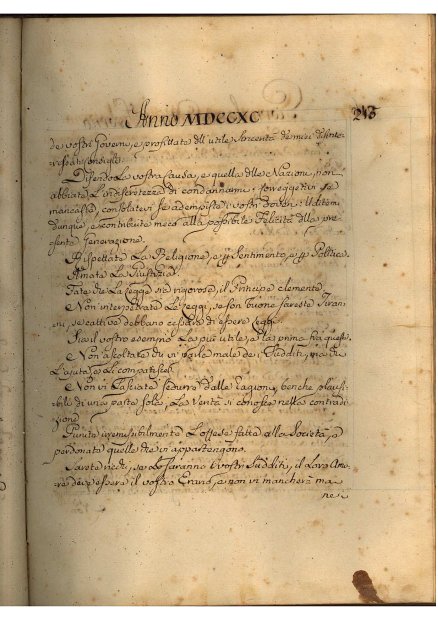 Anno MDCCXC 243
de vostri Governi, e profittate dell' utile sincerità de miei disinte-
ressati consigli.
Difendo la vostra causa, e quella delle Nazioni, non
abbiate l'indiscretezza di condannarmi: correggetevi se
mancaste, consolatevi se adempiste i vostri doveri: Uditemi
dunque, e contribuite meco alla possibile Felicità della pre-
sente Generazione.
Rispettate La Religione, e per Sentimento, e per Politica.
Amate La Giustizia.
Fate che La Legge sia rigorosa, il Principe clemente.
Non interpretate Le Leggi, se son buone sareste Tiran-
ni, se cattive debbono cessare di essere Leggi.
Sia il vostro esempio La più utile, e la prima fra queste.
Non ascoltate chi vi parla male dei Sudditi, ma chi
L'ajuta, e Li compatisce.
Non vi Lasciate sedurre dalle ragioni, benche plausi-
bili di una parte sola, La Verità si conosce nella contradi-
zione.
Punite irremisibilmente L'offese fatte alla Società, e
perdonate quelle che vi appartengono.
Sarete ricchi, se Lo saranno i vostri Sudditi, il Loro Amo-
re dev'essere il vostro Erario, e non vi mancherà mai
ne i